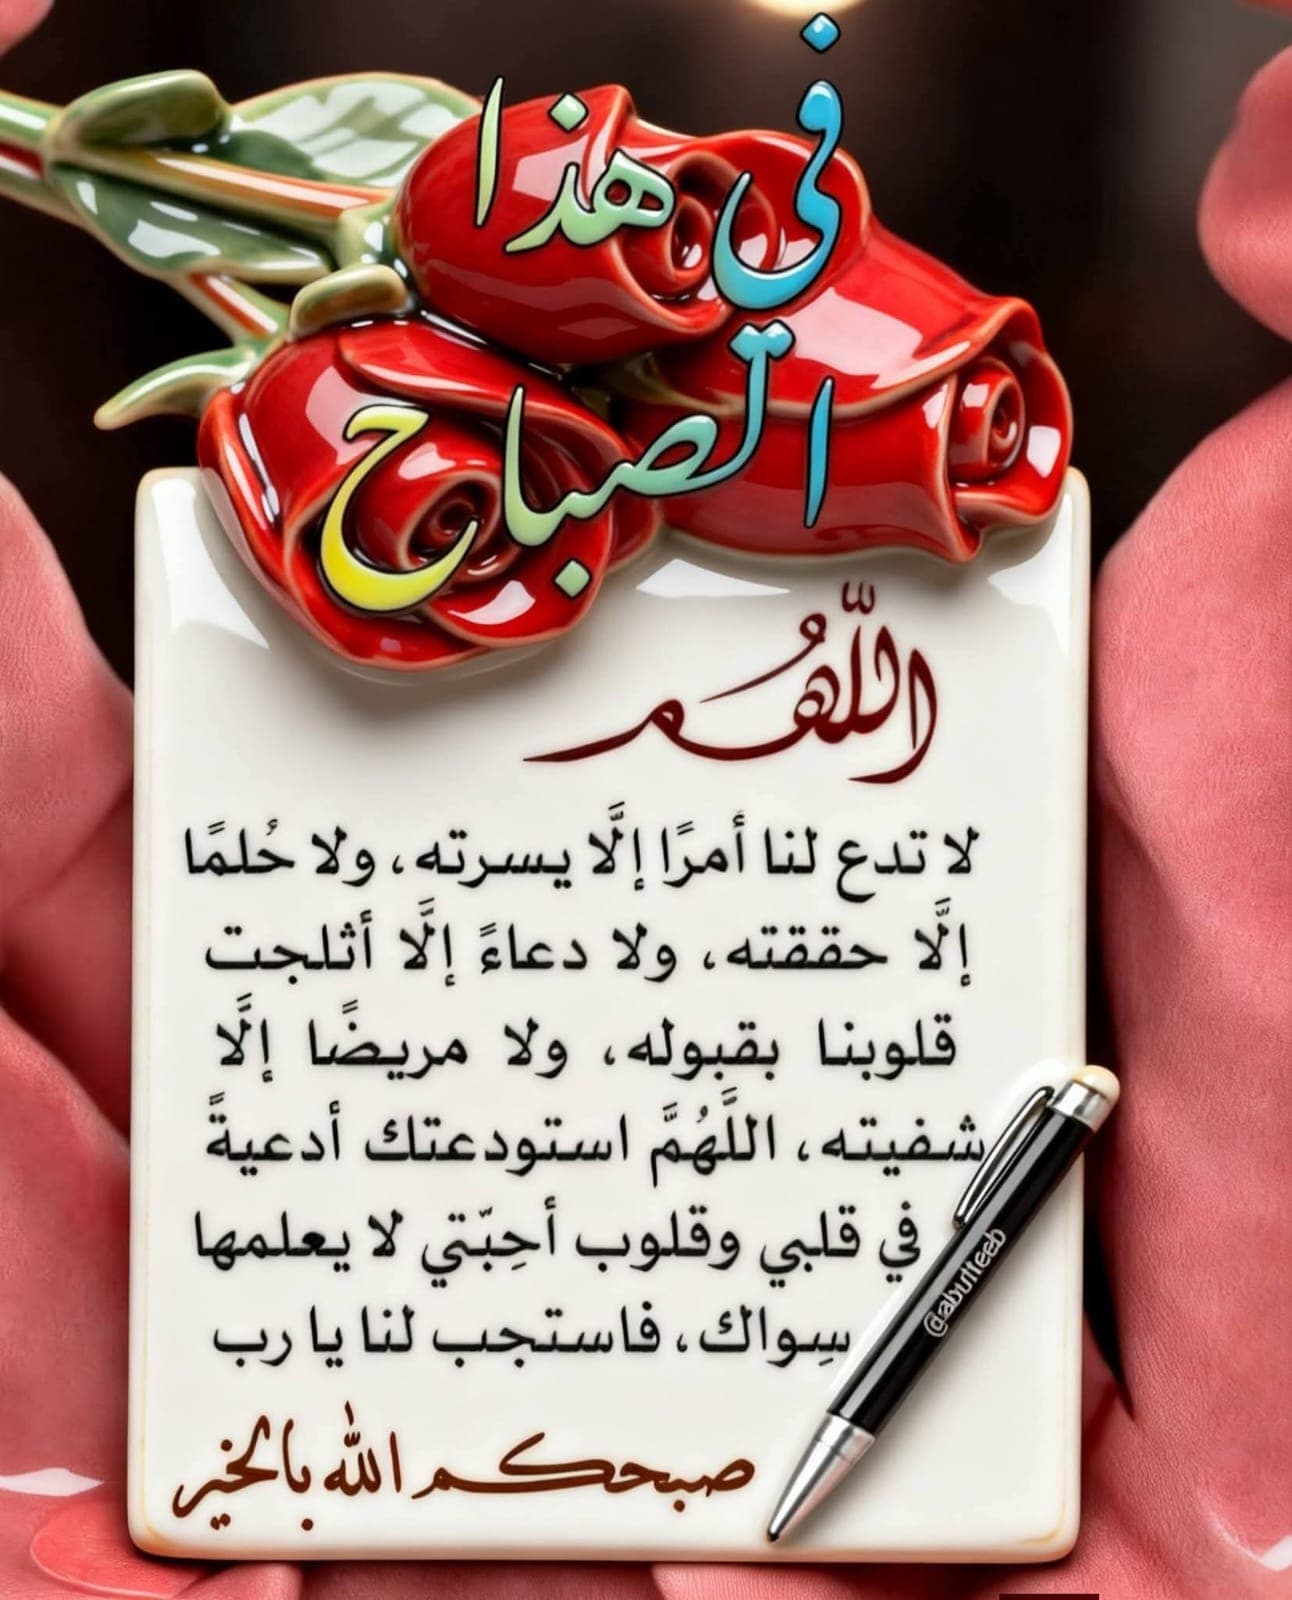 في هذا
الصباح
اللّهُم
لا تدع لنا أمرًا إلَّا يسرته، ولا حُلمًا
إلَّا حققته، ولا دعاءً إلَّا أثلجت
قلوبنا بقبوله، ولا مريضًا إلَّا
شفيته، اللَّهُمَّ استودعتك أدعيةً
في قلبي وقلوب أحِبّتي لا يعلمها
سِواك، فاستجب لنا يا رب
صبحكم الله بالخير
@abutteeb